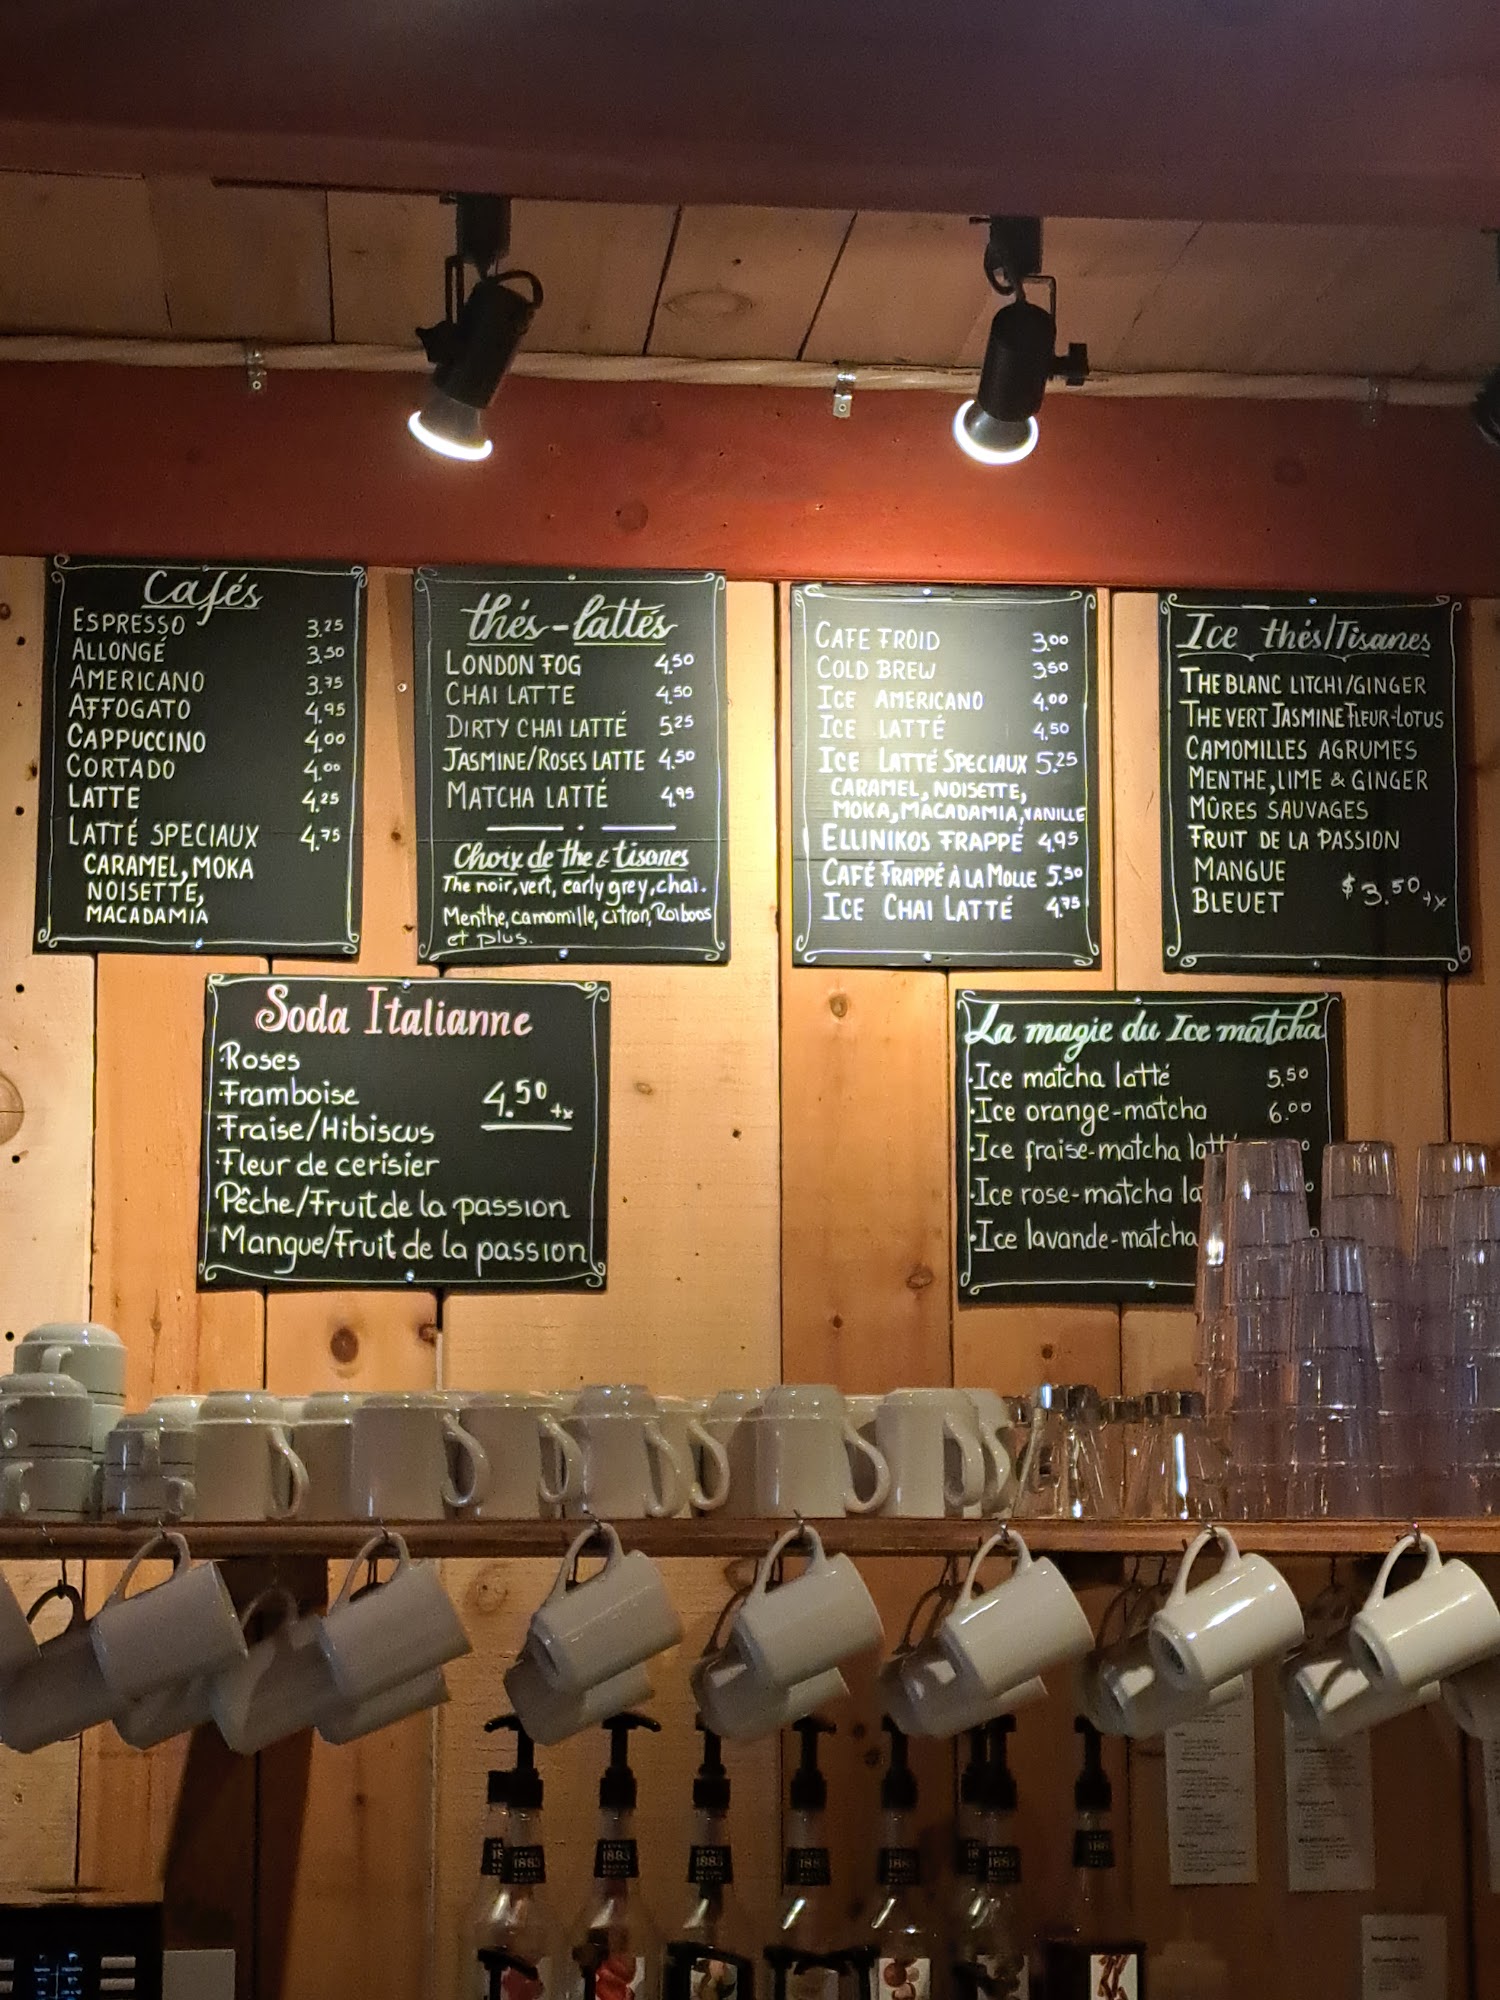 Cafés
ESPRESSO 3.25
ALLONGÉ 3.50
AMERICANO 3.75
AFFOGATO 4.95
CAPPUCCINO 4.00
CORTADO 4.00
LATTE 4.25
LATTÉ SPECIAUX 4.75
CARAMEL, MOKA
NOISETTE,
MACADAMIA
thés-lattés
LONDON FOG 4.50
CHAI LATTE 4.50
DIRTY CHAI LATTÉ 5.25
JASMINE/ROSES LATTE 4.50
MATCHA LATTÉ 4.95
Choix de the & tisanes
The noir, vert, early grey, chai.
Menthe, camomille, citron, Roiboos
et plus.
CAFE FROID 3.00
COLD BREW 3.50
ICE AMERICANO 4.00
ICE LATTÉ 4.50
ICE LATTÉ SPECIAUX 5.25
CARAMEL, NOISETTE,
MOKA, MACADAMIA, VANILLE
ELLINIKOS FRAPPÉ 4.95
CAFÉ FRAPPÉ À LA MOLLE 5.50
ICE CHAI LATTÉ 4.75
Ice thés/Tisanes
THE BLANC LITCHI/GINGER
THE VERT JASMINE FLEUR-LOTUS
CAMOMILLES AGRUMES
MENTHE, LIME & GINGER
MÛRES SAUVAGES
FRUIT DE LA PASSION
MANGUE
BLEUET $3.50+x
Soda Italianne
·Roses
·Framboise 4.50+x
·Fraise/Hibiscus
·Fleur de cerisier
Pêche/Fruit de la passion
Mangue/Fruit de la passion
La magie du Ice matcha
·Ice matcha latté 5.50
·Ice orange-matcha 6.00
·Ice fraise-matcha
·Ice rose-matcha
·Ice lavande-matcha
1883
1883
1883
1883